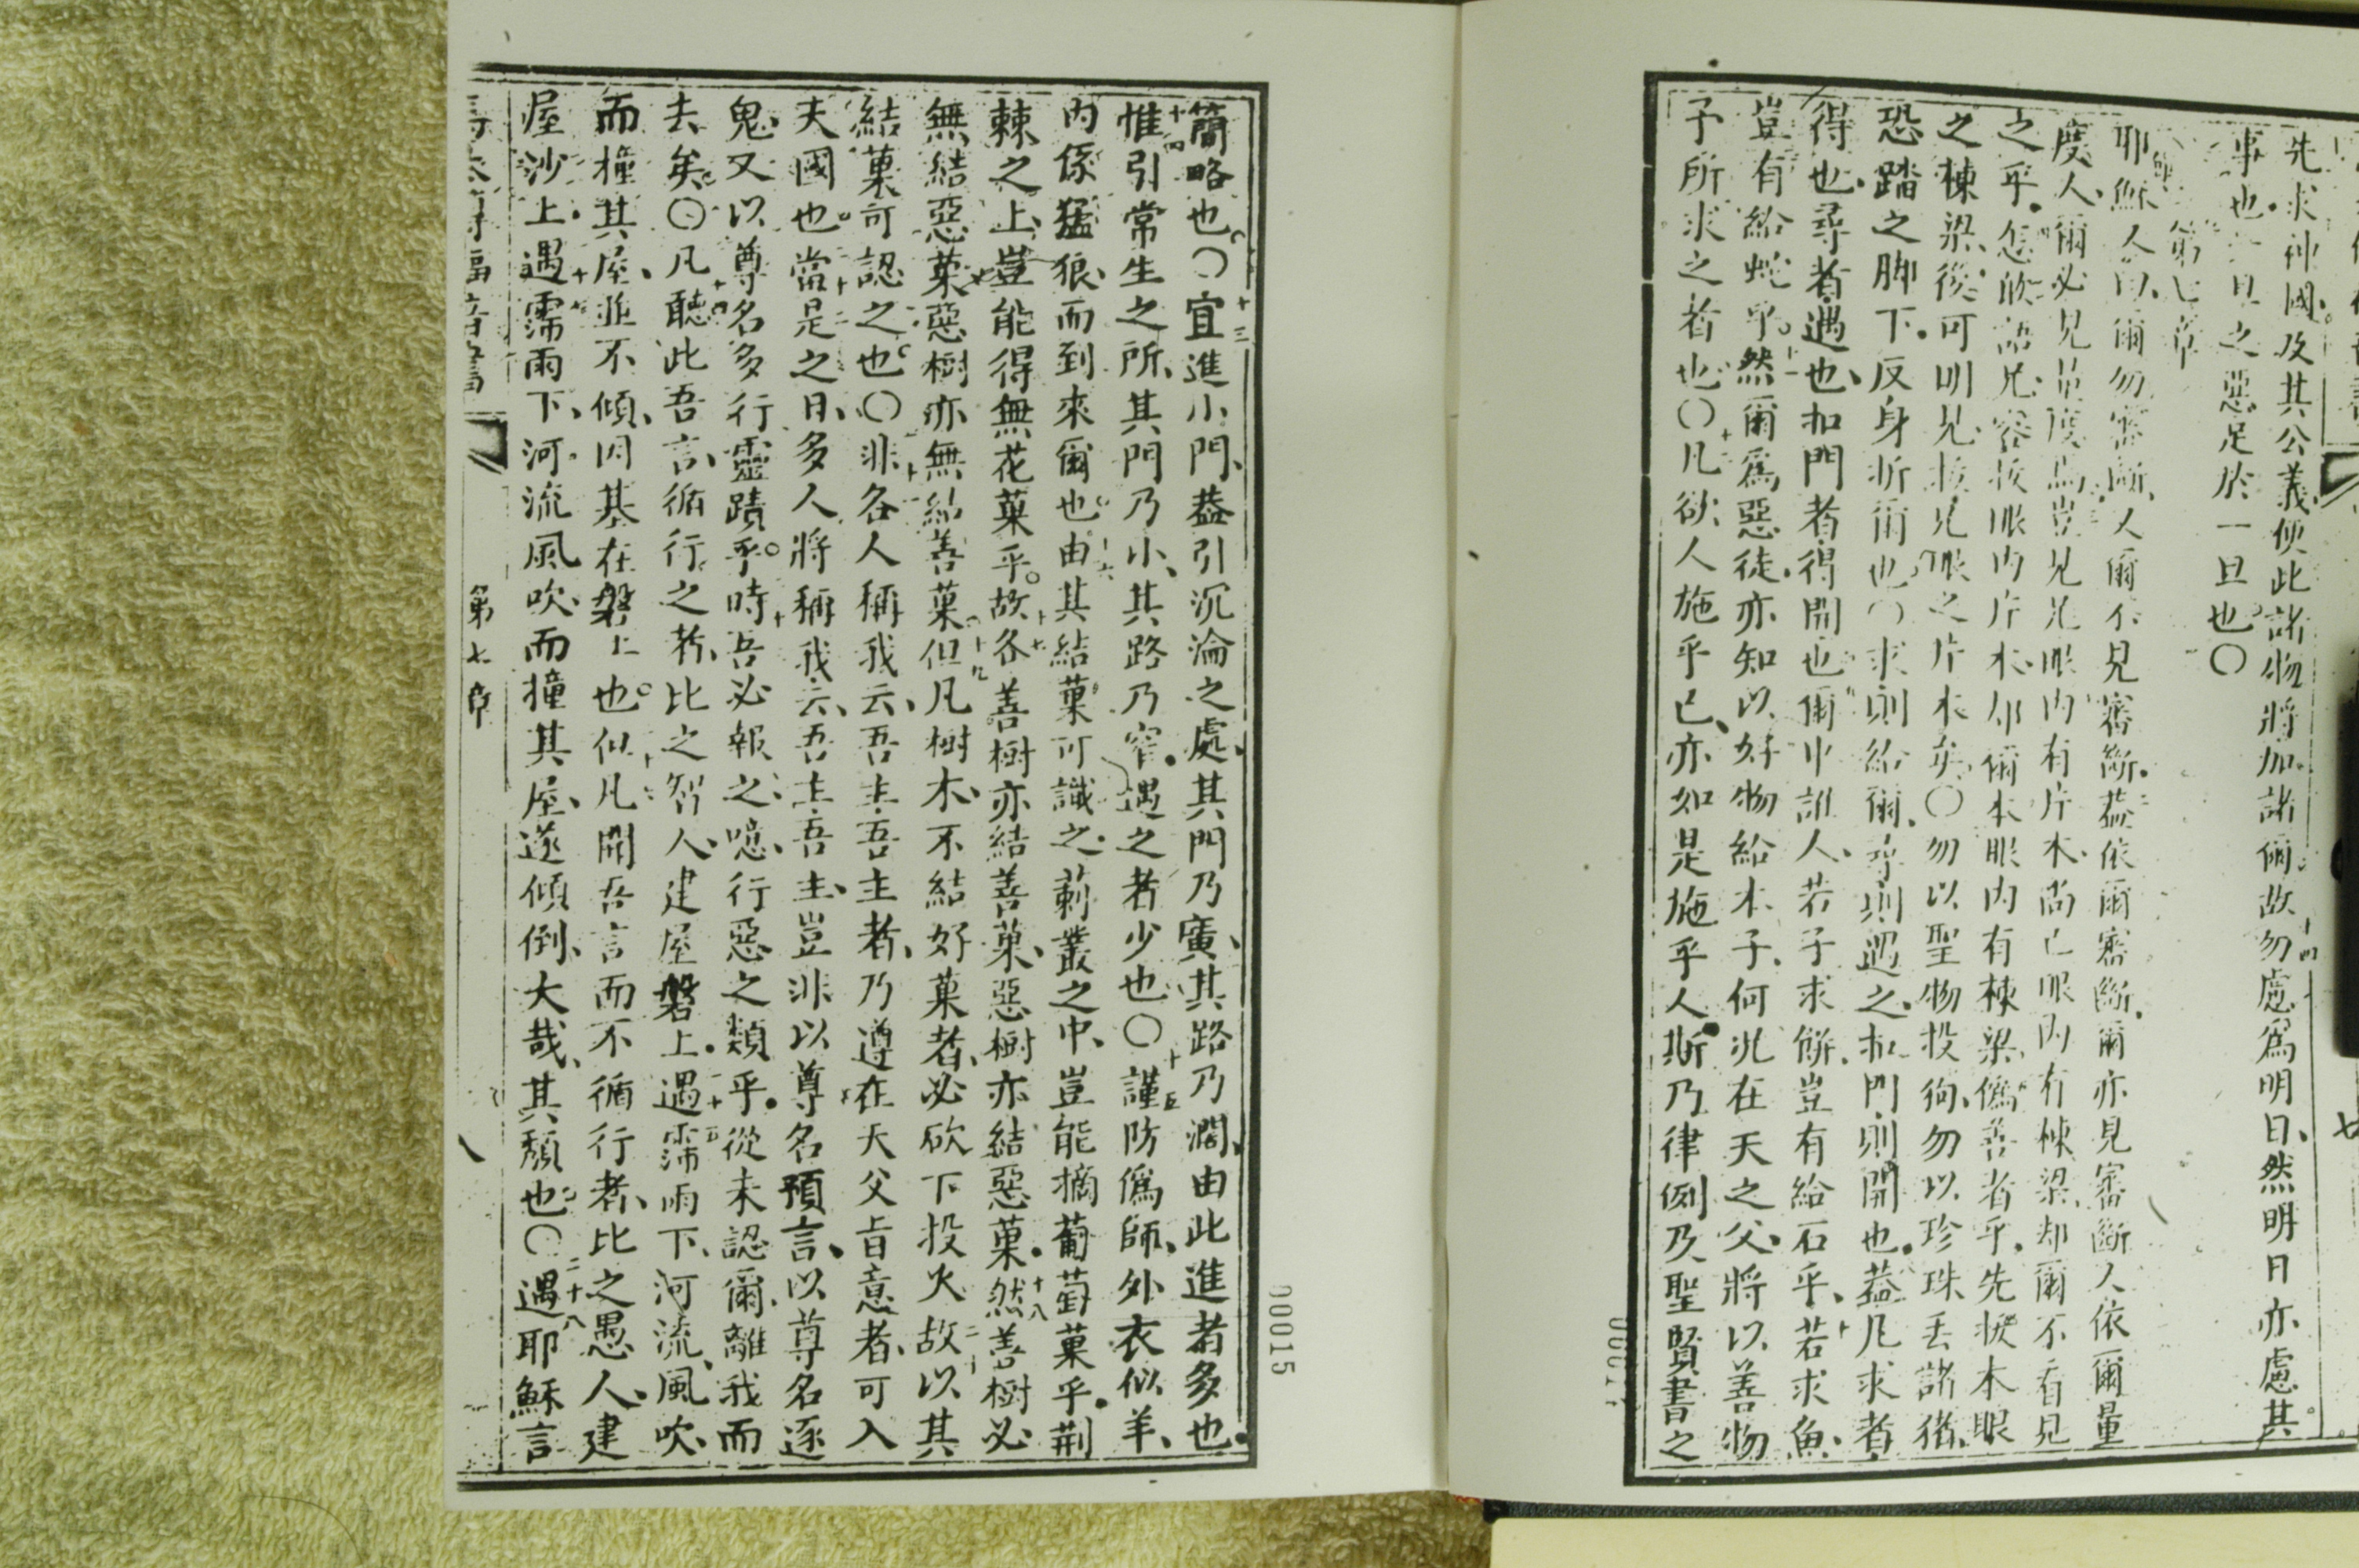 先求神國及其公義便此諸物將加諸爾故勿慮爲明日然明日亦慮其
事也一日之惡足於一旦也〇
第七章
耶穌人曰爾勿審斷人爾不見審斷葢依爾審斷爾亦見審斷人依爾量
度人爾必見量度焉豈見兄眼內有片木尚己眼內有棟梁却爾不看見
之乎怎敢語兄容拔眼內片木却爾本眼內有棟梁僞善者乎先拔木眼
之棟梁後可明見拔兄眼之片木矣〇勿以聖物投狗勿以珍珠丢諸猪
恐踏之脚下反身折爾也〇求則給爾尋則遇之扣門則開也葢凡求者
得也尋者遇也扣門者得開也爾中誰人若子求餅豈有給石乎若求魚
豈有給蛇乎然爾爲惡徒亦知以好物給本子何况在天之父將以善物
予所求之者也〇凡欲人施乎己亦如是施乎人斯乃律例及聖賢書之
簡略也〇宜進小門葢引沉淪之處其門乃廣其路乃濶由此進者多也
惟引常生之所其門乃小其路乃窄遇之者少也〇謹防僞師外衣似羊
內係猛狼而到來爾也由其結菓可識之莿叢之中豈能摘葡萄菓乎荆
棘之上豈能得無花菓乎故各善樹亦結善菓惡樹亦結惡菓然善樹必
無結惡菓惡樹亦無結善菓但凡樹木不結好菓者必砍下投火故以其
結菓可認之也〇非各人稱我云吾主吾主者乃遵在天父旨意者可入
天國也當是之日多人將稱我云吾主吾主豈非以尊名預言以尊名逐
鬼又以尊名多行靈蹟乎時吾必報之噫行惡之類乎從未認爾離我而
去矣〇凡聽此吾言循行之者比之智人建屋磐上遇霈雨下河流風吹
而撞其屋並不傾因基在磐上也似凡聞吾言而不循行者比之愚人建
屋沙上遇霈雨下河流風吹而撞其屋遂傾倒大哉其頽也〇遇耶穌言
第七章
八
00015